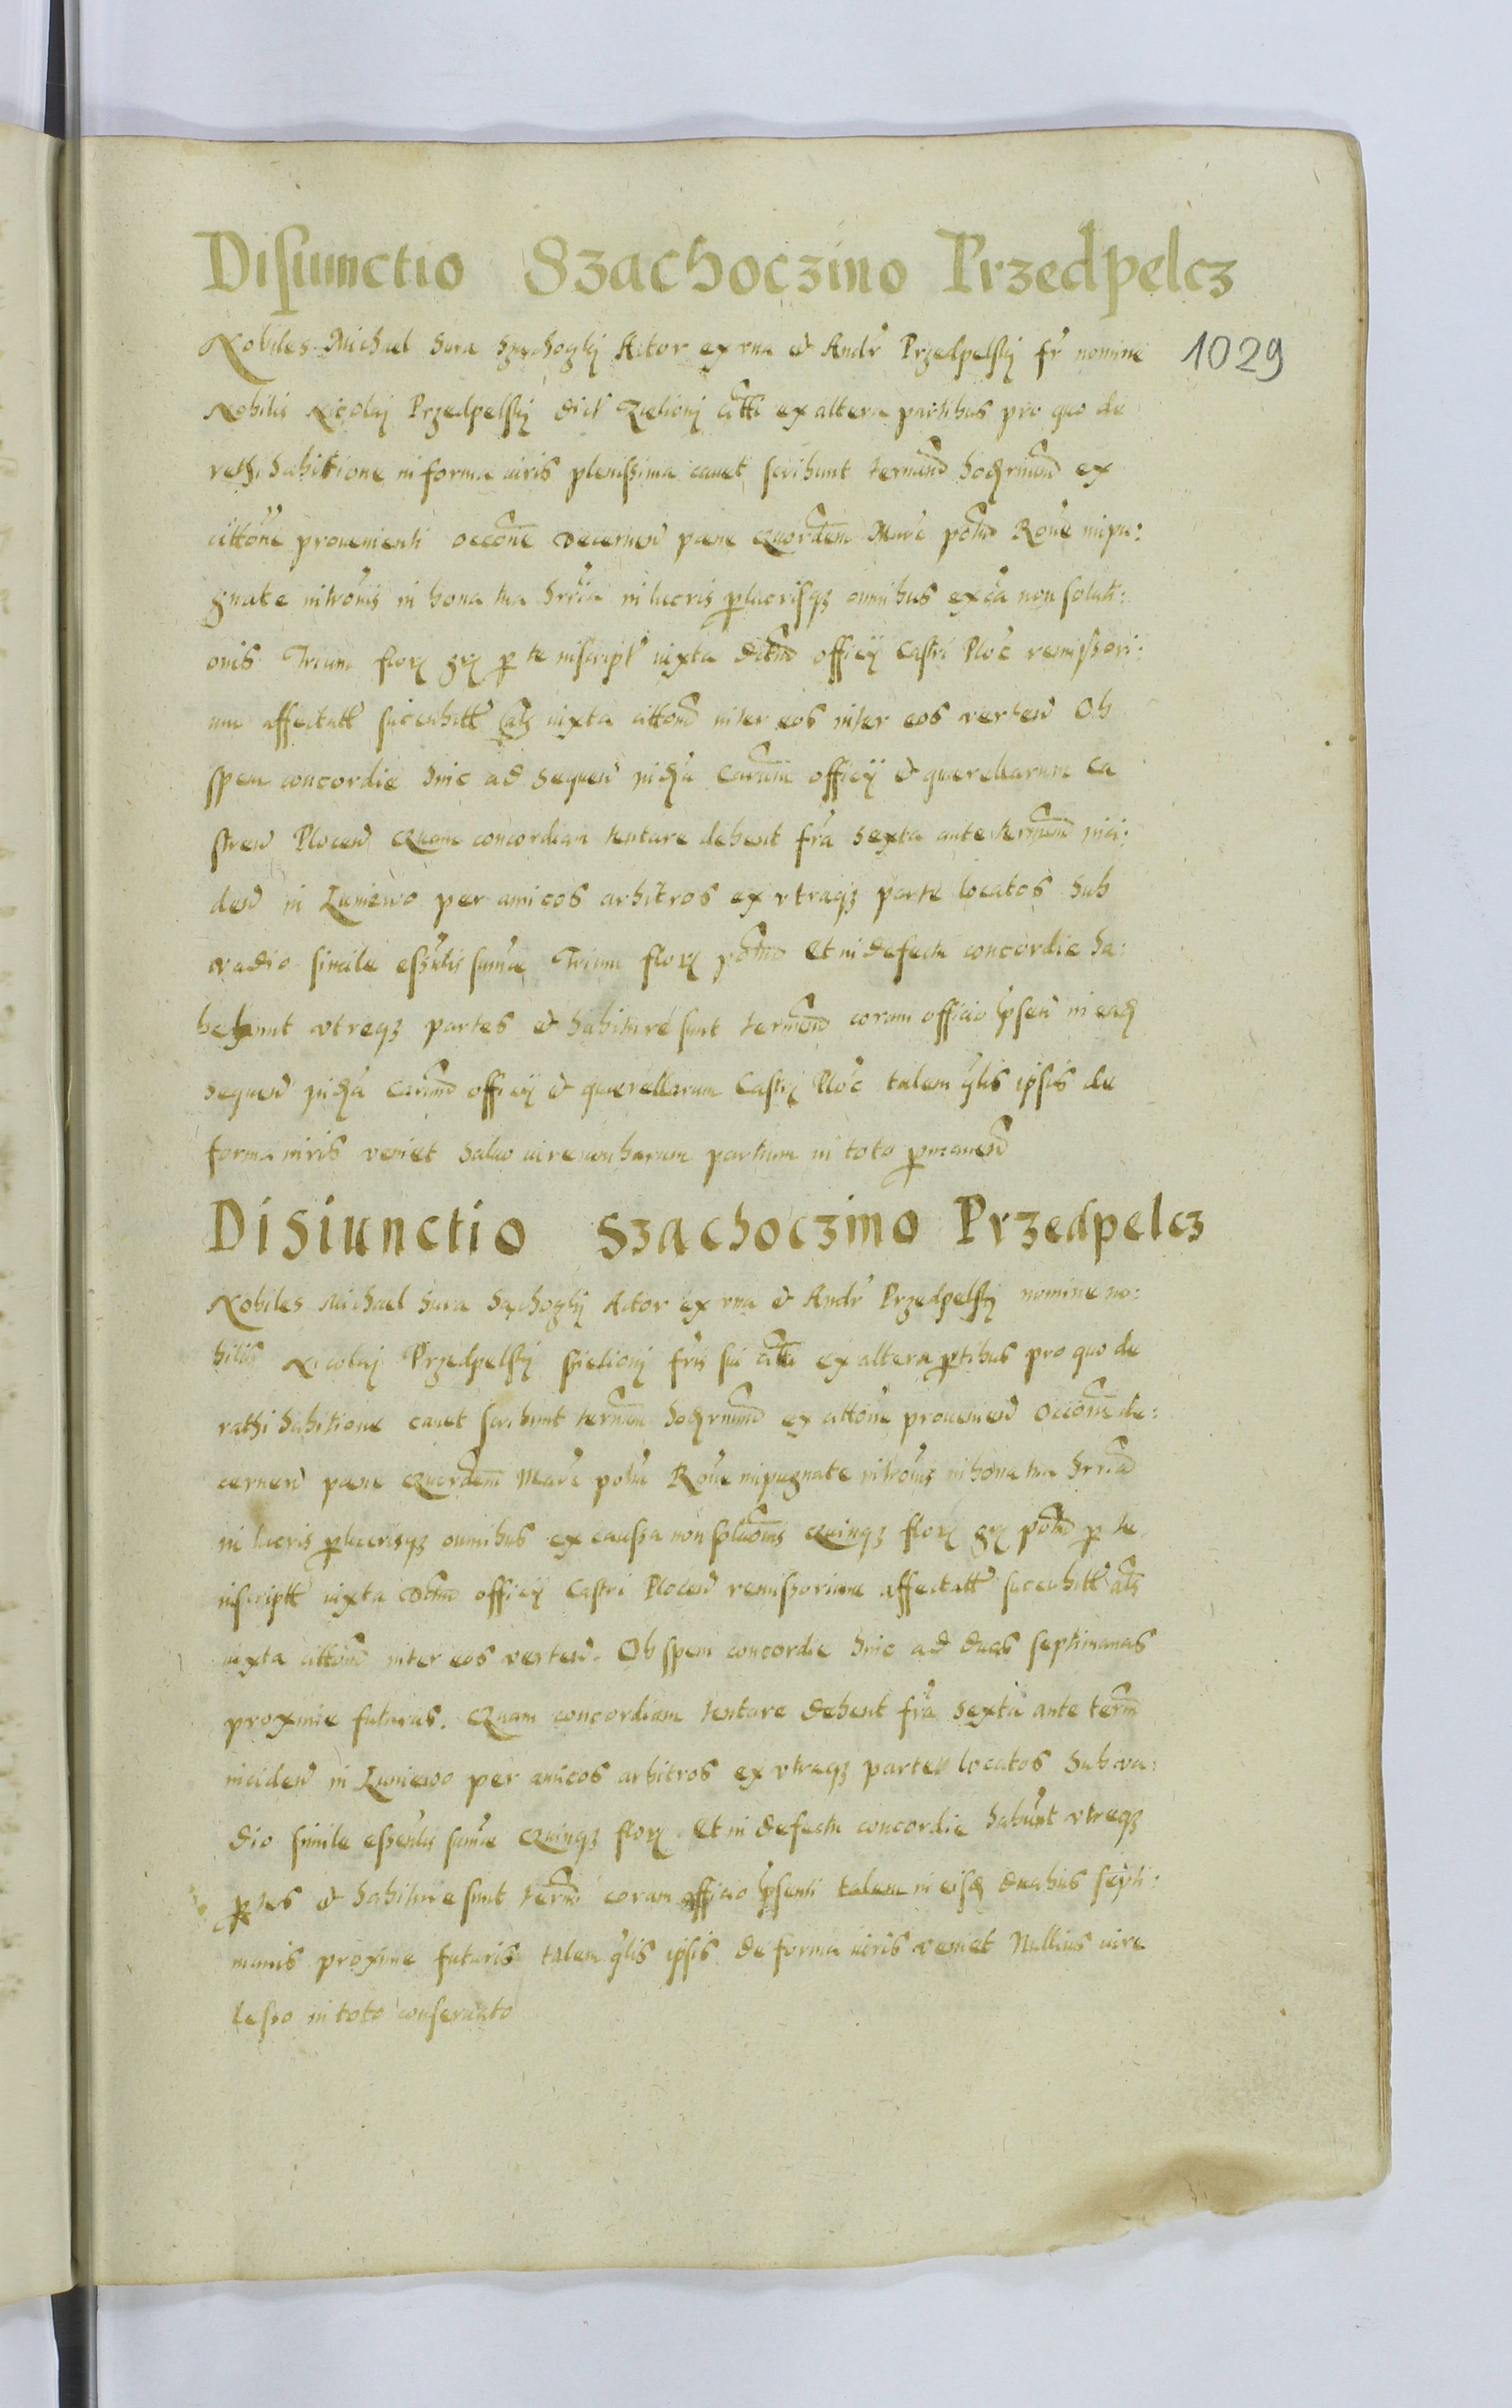 Disiunctio Szachoczino Przedpelcz
Nobiles Michael Sura Actor ex vna et Andr Przedpelskj fr nomine
1029
Nobilis Nicolaj Przedpelskj dict Zielionj citti ex altera partibus pro quo de
rathi habitione in forma iuris plenissima cauet scribunt terminū hodiernum ex
cittōne prouenienti occōne decernen pene Quordem Marc Roue inpu:
gnate introūis in bona tua in lucris perlucrisqz omnibus ex cā non soluti:
onis Trium flor per te inscript iuxta officij Castri Ploc remissori:
um affectatt succubitt als iuxta cittōnē inter eos inter eos verten Ob
spem concordie hinc ad sequen officij et querellarum Ca
stren Plocen Quam concordiam tentare debent fra sexta ante terminū inci:
den in Luniewo per amicos arbitros ex vtraqz parte locatos Sub
vadio simile Trium flor Et in defectu concordie ha:
bebunt vtreqz partes et habiture sunt terminū coram officio psen in
sequen officij et querellarum Castri Ploc talem qlis ipsis de
forma iuris veniet Saluo iure partium in toto permanen
Disiunctio Szachoczino Przedpelcz
Nobiles Michael Sura Actor ex vna et Andr Przedpelskj nomine no:
bilis Nicolaj Przedpelskj fris sui citti ex altera ptibus pro quo de
rathi habitione cauet scribunt terminū hodiernum ex cittōne prouenien occōne de:
cernen pene Quordem Marc Roue inpugnate introūis in bona tua
in lucris perlucrisqz omnibus ex caussa non solutōnis Quinqz flor per te
inscriptt iuxta officij Castri Plocen remissorium affectatt succubitt als
iuxta cittōnē inter eos verten. Ob spem concordie hinc ad duas septimanas
proxime futuras. Quam concordiam tentare debent fra sexta ante term
inciden in Luniewo per amicos arbitros ex vtraqz parte locatos Sub va:
dio simile Quinqz flor. Et in defectu concordie habunt vtreqz
ptes et habiture sunt term coram officio psenti talem in eisd duabus septi:
manis proxime futuris talem qlis ipsis de forma iuris veniet Nullius iure
lesso in toto conseruato